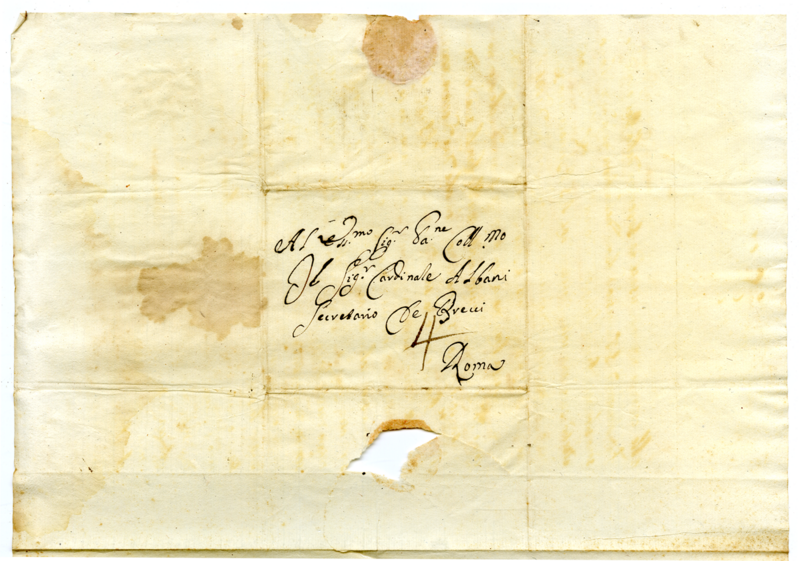 Al
Sig.r Pa.ne Coll.mo
Il Sig.r Cardinale Albani
Secretario De Brevi
4
Roma